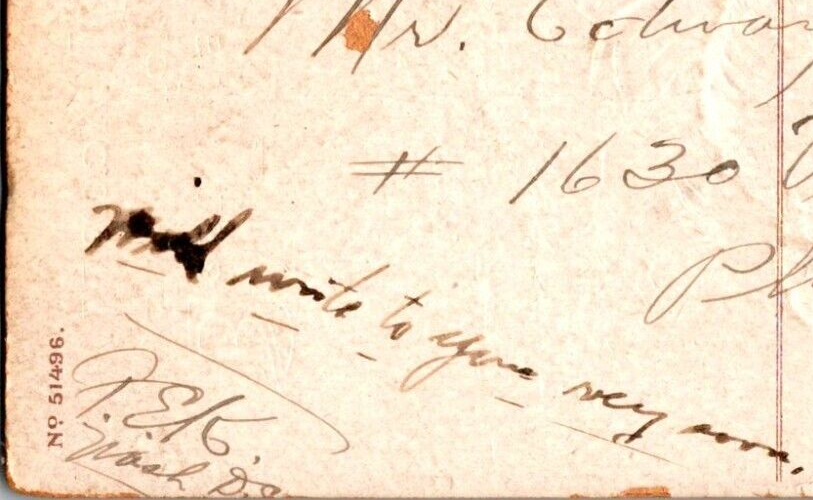 Mr. Edwar
# 1630
Ph
Will write to you very soon.
F.E.K.
Wash D.C.
No 51496.